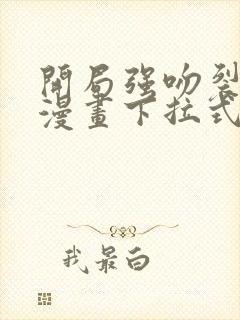 開局強吻裂
漫畫下拉式
我最白